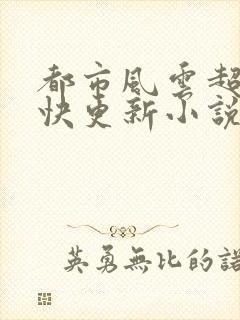 都市風雲超
快更新小說
英勇無比的諾